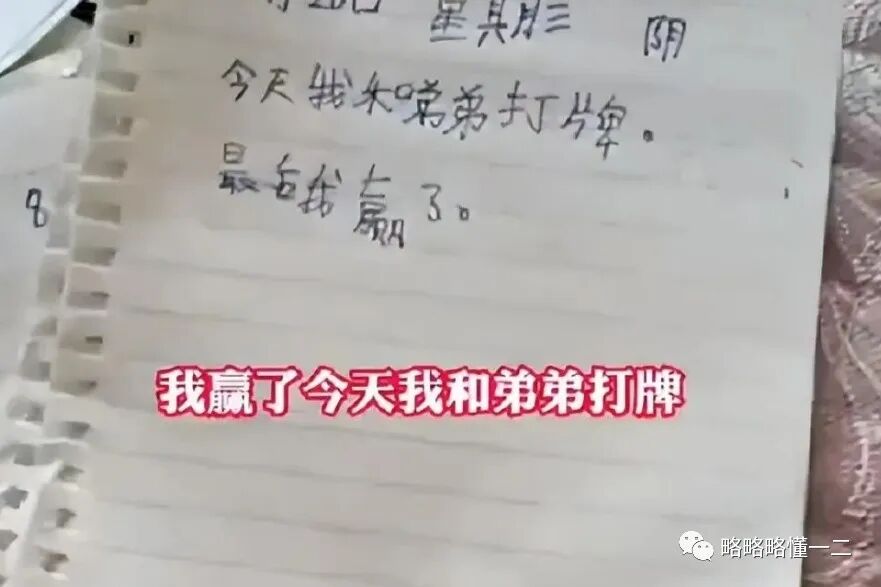 星期三 阴
今天我和弟弟打牌。
最后我赢了。
8
我赢了今天我和弟弟打牌
略略略懂一二